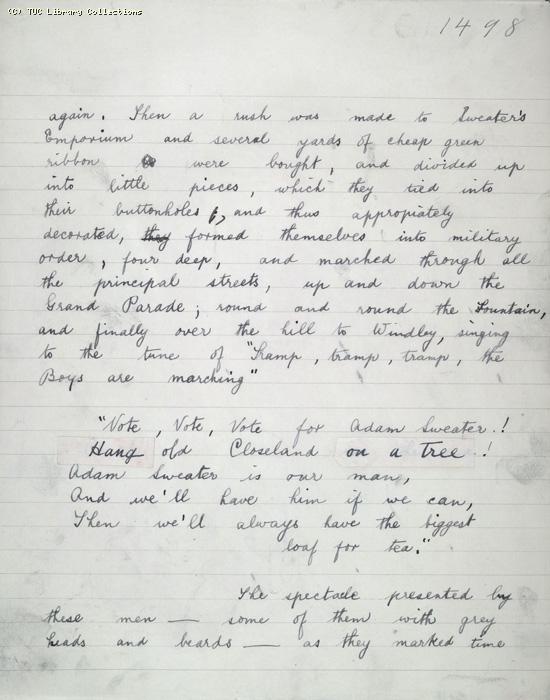 (C) TUC Library Collections
1498
again. Then a rush was made to Sweater's
Emporium and several yards of cheap green
ribbon were bought, and divided up
into little pieces, which they tied into
their buttonholes, and thus appropiately
decorated, they formed themselves into military
order, four deep, and marched through all
the principal streets, up and down the
Grand Parade; round and round the Fountain,
and finally over the hill to Windley, singing
to the tune of "Tramp, tramp, tramp, the
Boys are marching"
"Vote, Vote, Vote for Adam Sweater.!
Hang old Closeland on a Tree.!
Adam Sweater is our man,
And we'll have him if we can,
Then we'll always have the biggest
loaf for tea."
The spectacle presented by
these men — some of them with grey
heads and beards — as they marked time